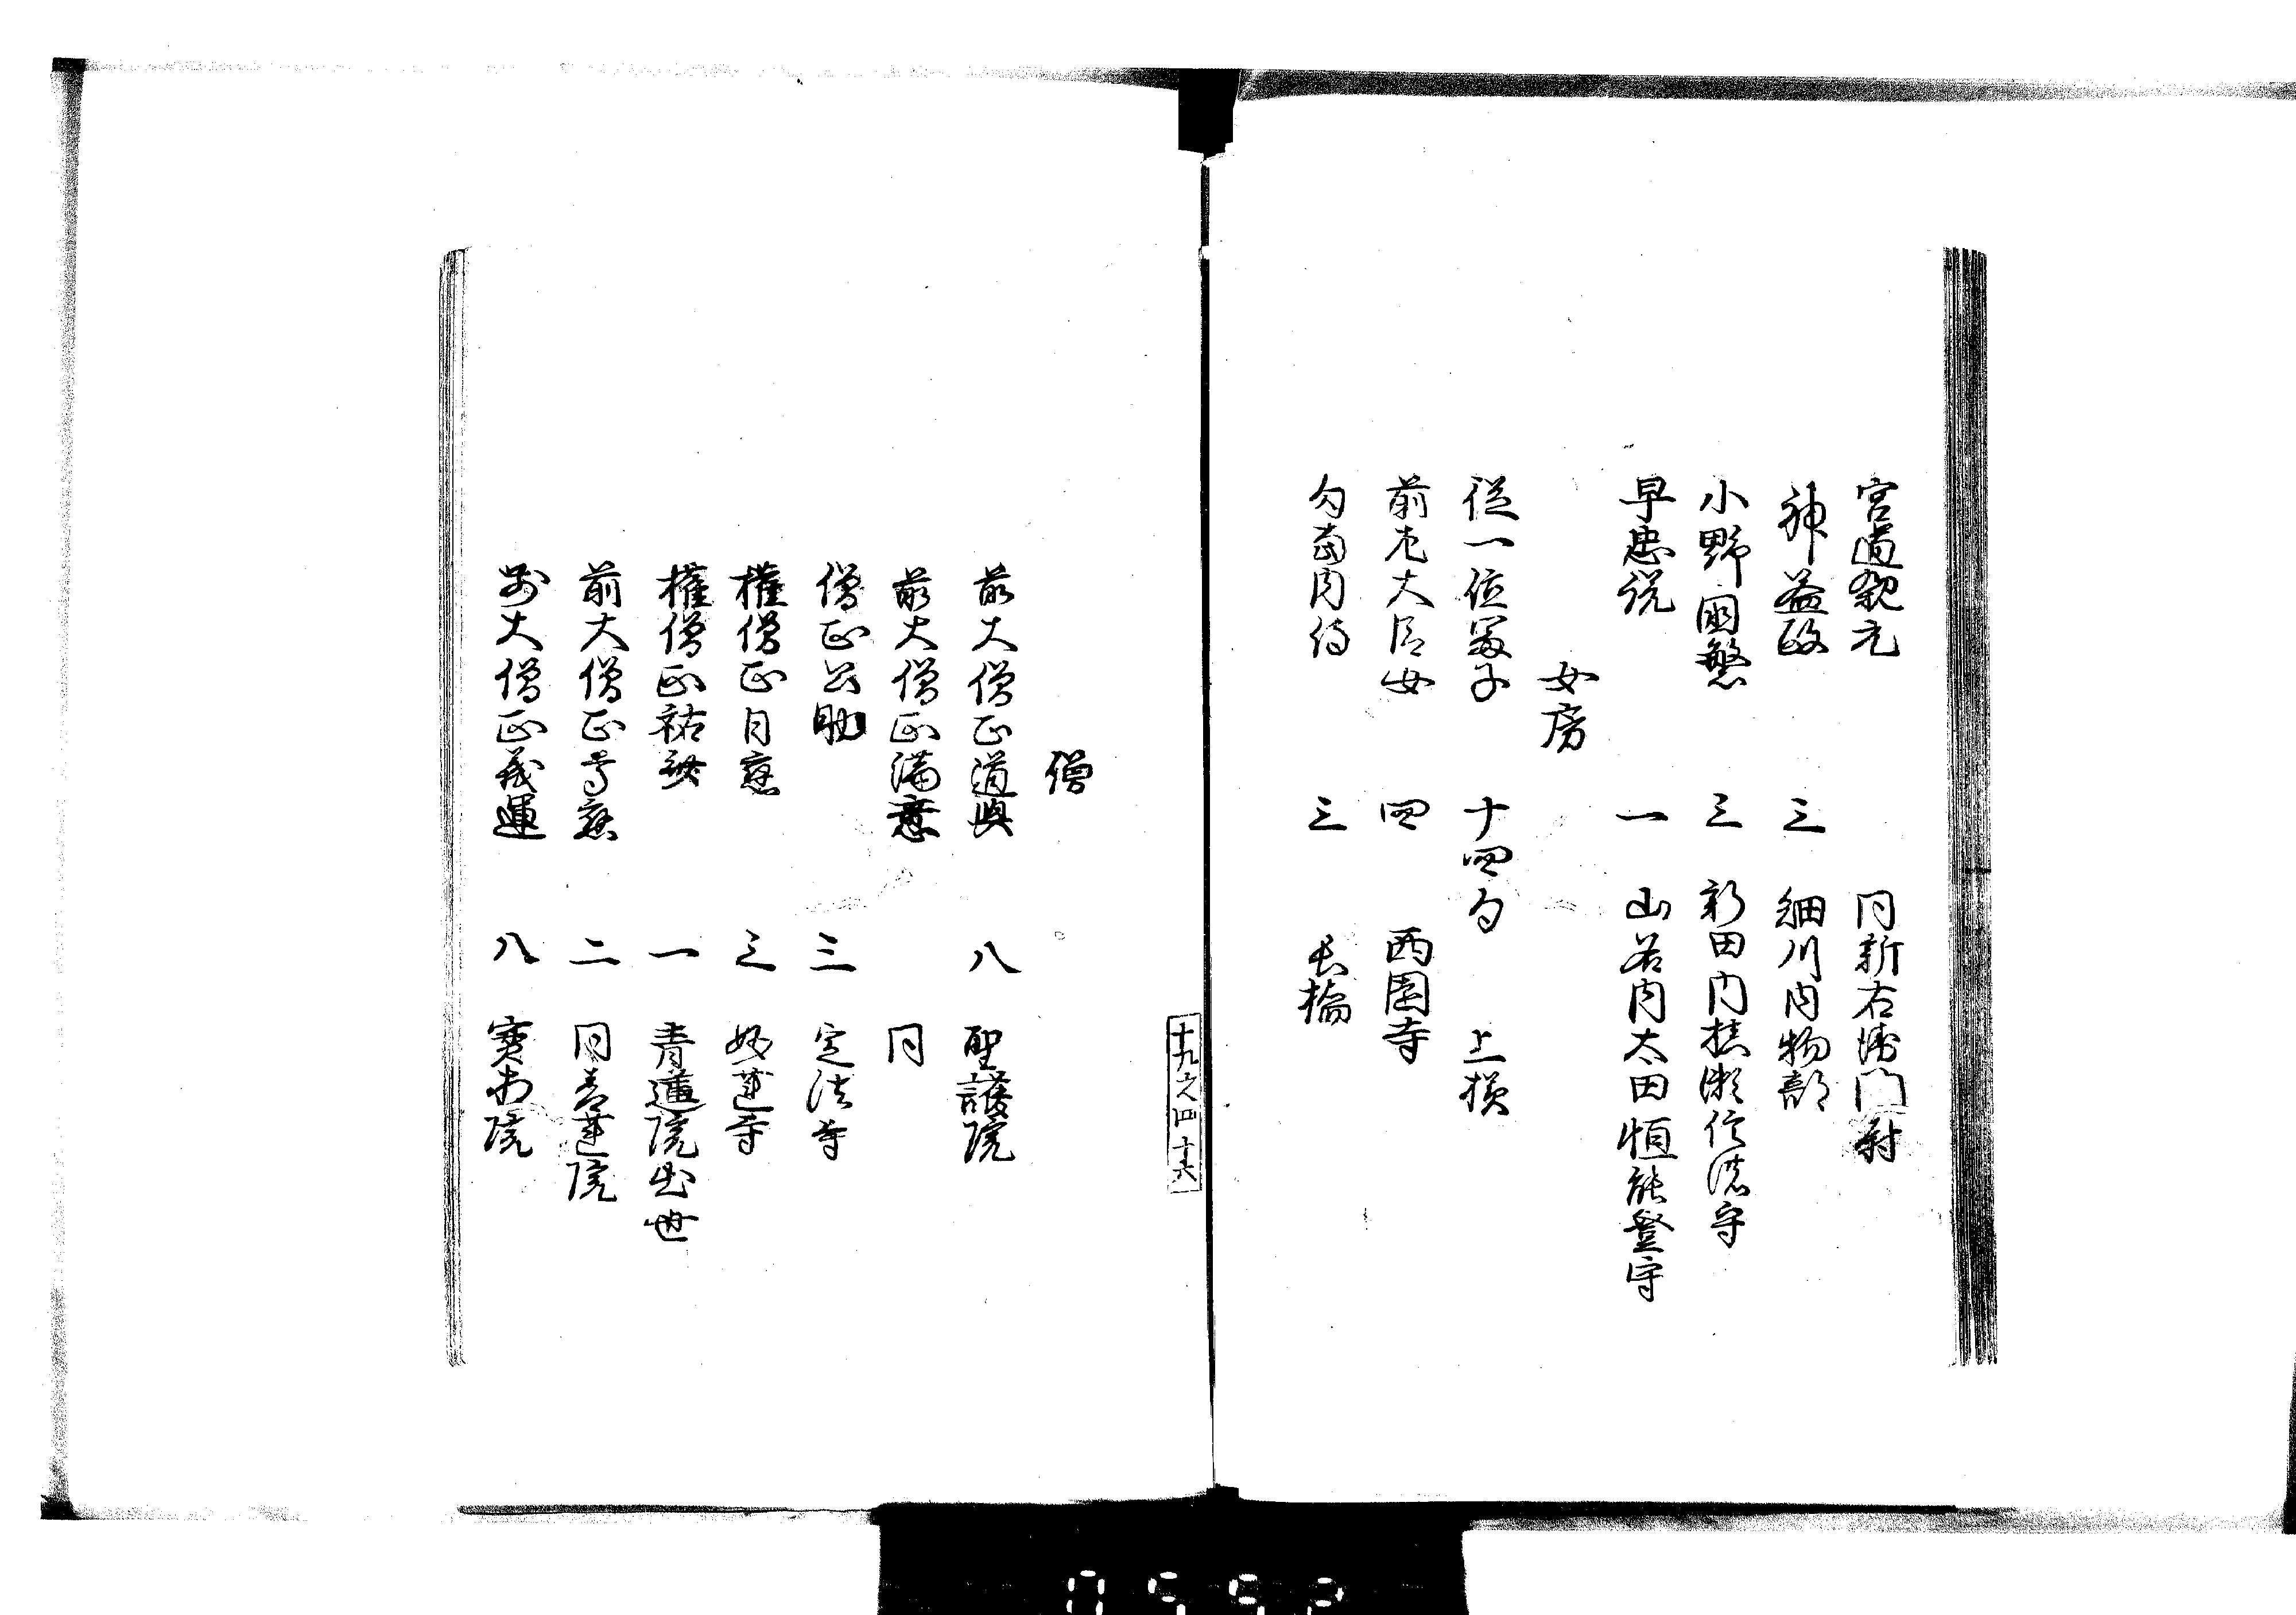 宮道親元　同新右衛門尉
神益政　三　細川内物部
小野國繁　三　新田内横瀬信濃守
早恵説　一　山名内太田垣能登守
女房
従一位冨子　十四句　上様
前左大臣女　四　西園寺
勾當内侍　三　長橋
十九之四十六
僧
前大僧正道興　八　聖護院
前大僧正満意　同
僧正公助　三　定法寺
権僧正日應　三　妙蓮寺
権僧正祐　一　青蓮院出世
前大僧正尊應　二　同青蓮院
前大僧正義運　八　實相院